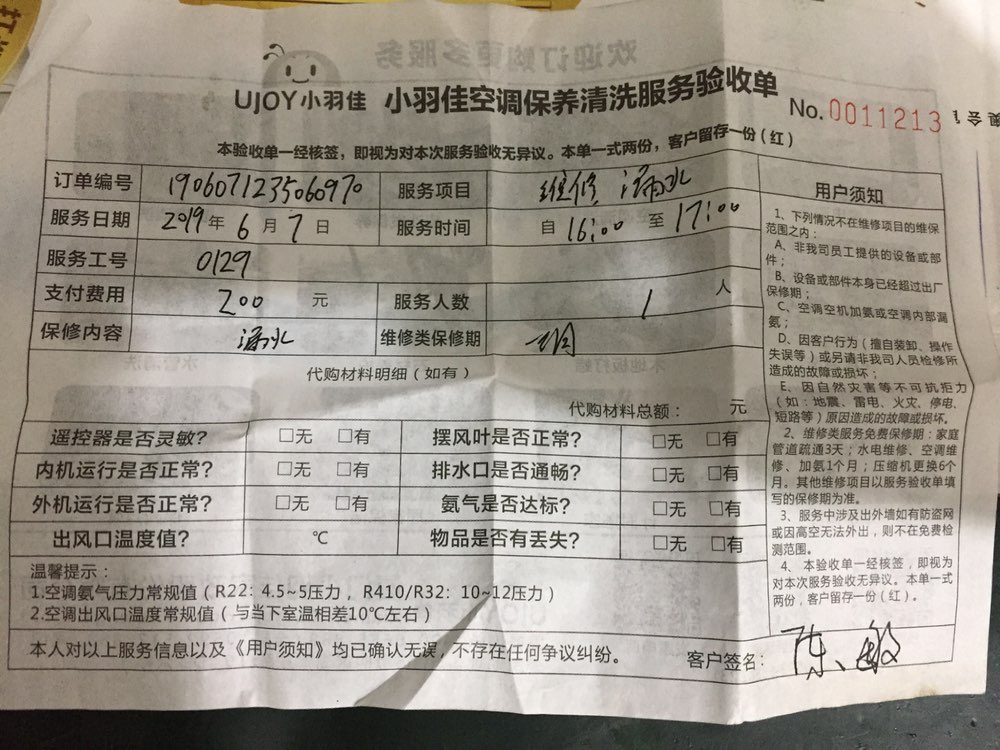 UJOY小羽佳 小羽佳空调保养清洗服务验收单 No.0011213
本验收单一经核签，即视为对本次服务验收无异议。本单一式两份，客户留存一份（红）
订单编号 190607123506097０ 服务项目 维修 漏水
服务日期 2019年6月7日 服务时间 自16:00至17:00
服务工号 0129
支付费用 200 元 服务人数 1 人
保修内容 漏水 维修类保修期
代购材料明细（如有）
代购材料总额： 元
遥控器是否灵敏？ □无 □有 摆风叶是否正常？ □无 □有
内机运行是否正常？ □无 □有 排水口是否通畅？ □无 □有
外机运行是否正常？ □无 □有 氨气是否达标？ □无 □有
出风口温度值？ ℃ 物品是否有丢失？ □无 □有
温馨提示：
1.空调氨气压力常规值（R22：4.5~5压力，R410/R32：10~12压力）
2.空调出风口温度常规值（与当下室温相差10℃左右）
本人对以上服务信息以及《用户须知》均已确认无误，不存在任何争议纠纷。
客户签名：陈敏
用户须知
1、下列情况不在维修项目的维保
范围之内：
A、非我司员工提供的设备或部
件；
B、设备或部件本身已经超过出厂
保修期；
C、空调空机加氨或空调内部漏
氨；
D、因客户行为（擅自装卸、操作
失误等）或另请非我司人员检修所
造成的故障或损坏；
E、因自然灾害等不可抗拒力
（如：地震、雷电、火灾、停电、
短路等）原因造成的故障或损坏。
2、维修类服务免费保修期：家庭
管道疏通3天；水电维修、空调维
修、加氨1个月；压缩机更换6个
月。其他维修项目以服务验收单填
写的保修期为准。
3、服务中涉及出外墙如有防盗网
或因高空无法外出，则不在免费检
测范围。
4、本验收单一经核签，即视为
对本次服务验收无异议。本单一式
两份，客户留存一份（红）。